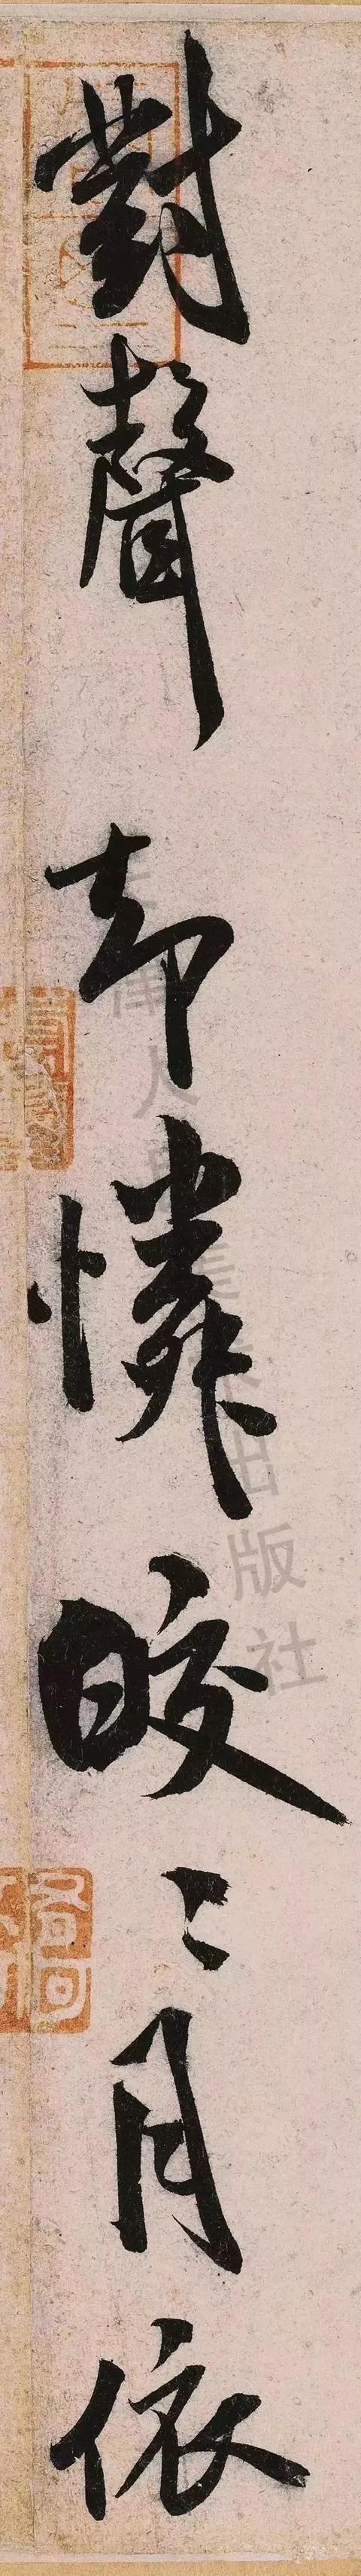 對聲却憐皎〻月依
人民美术出版社